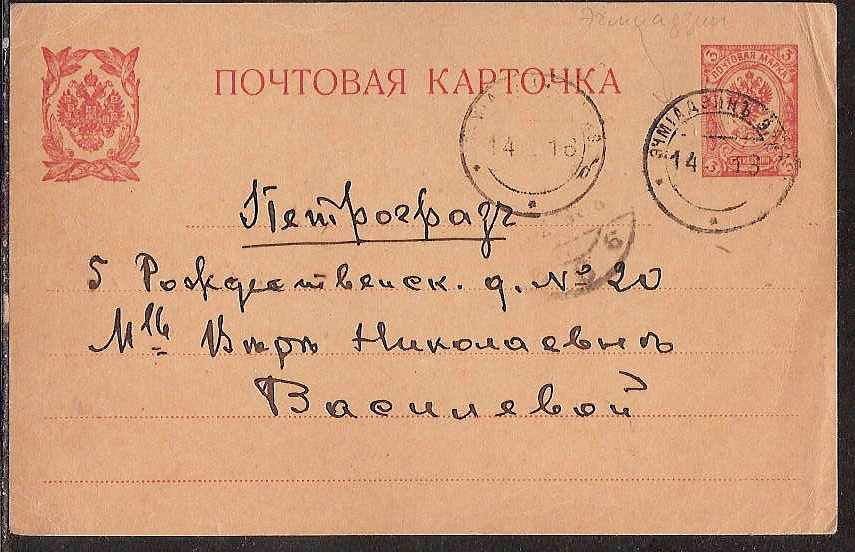 Эчмиадзин
3 3
ПОЧТОВАЯ МАРКА
ПОЧТОВАЯ КАРТОЧКА
14 16
ЭЧМІАДЗИНЪ
14 16
Петроградъ
6
5 Рождественск. д. № 20
Mlle Вѣрѣ Николаевнѣ
Василевой